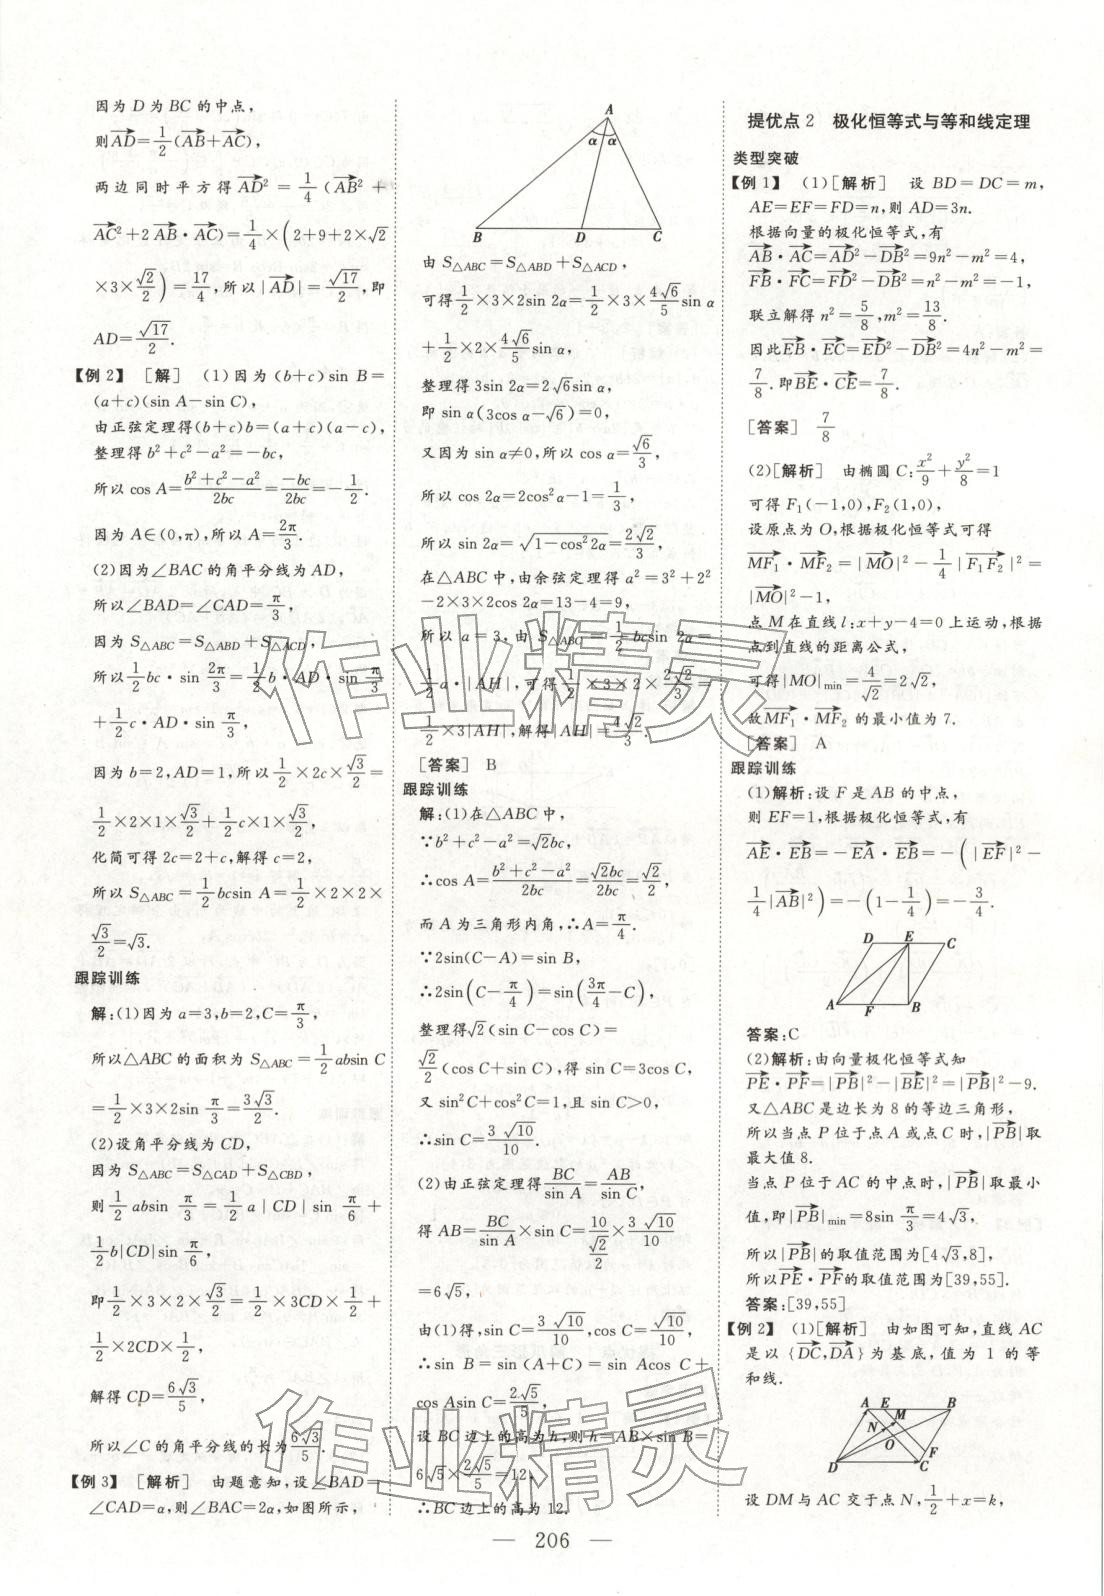 因为 D 为 BC 的中点，
则$\overrightarrow{AD}=\frac{1}{2}(\overrightarrow{AB}+\overrightarrow{AC})$，
两边同时平方得$\overrightarrow{AD}^2=\frac{1}{4}(\overrightarrow{AB}^2+$
$\overrightarrow{AC}^2+2\overrightarrow{AB}\cdot\overrightarrow{AC})=\frac{1}{4}\times\left(2+9+2\times\sqrt{2}\right.$
$\left.\times3\times\frac{\sqrt{2}}{2}\right)=\frac{17}{4}$，所以$|\overrightarrow{AD}|=\frac{\sqrt{17}}{2}$，即
$AD=\frac{\sqrt{17}}{2}$.
【例 2】 ［解］ (1)因为$(b+c)\sin B=$
$(a+c)(\sin A-\sin C)$，
由正弦定理得$(b+c)b=(a+c)(a-c)$，
整理得$b^2+c^2-a^2=-bc$，
所以$\cos A=\frac{b^2+c^2-a^2}{2bc}=\frac{-bc}{2bc}=-\frac{1}{2}$.
因为$A\in(0,\pi)$，所以$A=\frac{2\pi}{3}$.
(2)因为∠BAC 的角平分线为 AD，
所以∠BAD=∠CAD=$\frac{\pi}{3}$，
因为$S_{△ABC}=S_{△ABD}+S_{△ACD}$，
所以$\frac{1}{2}bc\cdot\sin\frac{2\pi}{3}=\frac{1}{2}b\cdot AD\cdot\sin\frac{\pi}{3}$
$+\frac{1}{2}c\cdot AD\cdot\sin\frac{\pi}{3}$，
因为$b=2,AD=1$，所以$\frac{1}{2}\times2c\times\frac{\sqrt{3}}{2}=$
$\frac{1}{2}\times2\times1\times\frac{\sqrt{3}}{2}+\frac{1}{2}c\times1\times\frac{\sqrt{3}}{2}$，
化简可得$2c=2+c$，解得$c=2$，
所以$S_{△ABC}=\frac{1}{2}bc\sin A=\frac{1}{2}\times2\times2\times$
$\frac{\sqrt{3}}{2}=\sqrt{3}$.
跟踪训练
解：(1)因为$a=3,b=2,C=\frac{\pi}{3}$，
所以△ABC 的面积为$S_{△ABC}=\frac{1}{2}ab\sin C$
$=\frac{1}{2}\times3\times2\sin\frac{\pi}{3}=\frac{3\sqrt{3}}{2}$.
(2)设角平分线为 CD，
因为$S_{△ABC}=S_{△CAD}+S_{△CBD}$，
则$\frac{1}{2}ab\sin\frac{\pi}{3}=\frac{1}{2}a|CD|\sin\frac{\pi}{6}+$
$\frac{1}{2}b|CD|\sin\frac{\pi}{6}$，
即$\frac{1}{2}\times3\times2\times\frac{\sqrt{3}}{2}=\frac{1}{2}\times3CD\times\frac{1}{2}+$
$\frac{1}{2}\times2CD\times\frac{1}{2}$，
解得$CD=\frac{6\sqrt{3}}{5}$，
所以∠C 的角平分线的长为$\frac{6\sqrt{3}}{5}$.
【例 3】 ［解析］ 由题意知，设∠BAD=
∠CAD=α，则∠BAC=2α，如图所示，
A
α α
B D C
由$S_{△ABC}=S_{△ABD}+S_{△ACD}$，
可得$\frac{1}{2}\times3\times2\sin2α=\frac{1}{2}\times3\times\frac{4\sqrt{6}}{5}\sinα$
$+\frac{1}{2}\times2\times\frac{4\sqrt{6}}{5}\sinα$，
整理得$3\sin2α=2\sqrt{6}\sinα$，
即$\sinα(3\cosα-\sqrt{6})=0$，
又因为$\sinα\neq0$，所以$\cosα=\frac{\sqrt{6}}{3}$，
所以$\cos2α=2\cos^2α-1=\frac{1}{3}$，
所以$\sin2α=\sqrt{1-\cos^22α}=\frac{2\sqrt{2}}{3}$，
在△ABC 中，由余弦定理得$a^2=3^2+2^2$
$-2\times3\times2\cos2α=13-4=9$，
所以$a=3$，由$S_{△ABC}=\frac{1}{2}bc\sin2α=$
$\frac{1}{2}a\cdot|AH|$，可得$\frac{1}{2}\times3\times2\times\frac{2\sqrt{2}}{3}=$
$\frac{1}{2}\times3|AH|$，解得$|AH|=\frac{4\sqrt{2}}{3}$.
［答案］ B
跟踪训练
解：(1)在△ABC 中，
∵$b^2+c^2-a^2=\sqrt{2}bc$，
∴$\cos A=\frac{b^2+c^2-a^2}{2bc}=\frac{\sqrt{2}bc}{2bc}=\frac{\sqrt{2}}{2}$，
而 A 为三角形内角，∴$A=\frac{\pi}{4}$.
∵$2\sin(C-A)=\sin B$，
∴$2\sin\left(C-\frac{\pi}{4}\right)=\sin\left(\frac{3\pi}{4}-C\right)$，
整理得$\sqrt{2}(\sin C-\cos C)=$
$\frac{\sqrt{2}}{2}(\cos C+\sin C)$，得$\sin C=3\cos C$，
又$\sin^2C+\cos^2C=1$，且$\sin C>0$，
∴$\sin C=\frac{3\sqrt{10}}{10}$.
(2)由正弦定理得$\frac{BC}{\sin A}=\frac{AB}{\sin C}$，
得$AB=\frac{BC}{\sin A}\times\sin C=\frac{10}{\frac{\sqrt{2}}{2}}\times\frac{3\sqrt{10}}{10}$
$=6\sqrt{5}$，
由(1)得，$\sin C=\frac{3\sqrt{10}}{10}$，$\cos C=\frac{\sqrt{10}}{10}$，
∴$\sin B=\sin(A+C)=\sin A\cos C+$
$\cos A\sin C=\frac{2\sqrt{5}}{5}$，
设 BC 边上的高为 h，则$h=AB\times\sin B=$
$6\sqrt{5}\times\frac{2\sqrt{5}}{5}=12$，
∴BC 边上的高为 12.
提优点 2 极化恒等式与等和线定理
类型突破
【例 1】 (1)［解析］ 设$BD=DC=m$，
$AE=EF=FD=n$，则$AD=3n$.
根据向量的极化恒等式，有
$\overrightarrow{AB}\cdot\overrightarrow{AC}=\overrightarrow{AD}^2-\overrightarrow{DB}^2=9n^2-m^2=4$，
$\overrightarrow{FB}\cdot\overrightarrow{FC}=\overrightarrow{FD}^2-\overrightarrow{DB}^2=n^2-m^2=-1$，
联立解得$n^2=\frac{5}{8}$，$m^2=\frac{13}{8}$.
因此$\overrightarrow{EB}\cdot\overrightarrow{EC}=\overrightarrow{ED}^2-\overrightarrow{DB}^2=4n^2-m^2=$
$\frac{7}{8}$.即$\overrightarrow{BE}\cdot\overrightarrow{CE}=\frac{7}{8}$.
［答案］ $\frac{7}{8}$
(2)［解析］ 由椭圆$C:\frac{x^2}{9}+\frac{y^2}{8}=1$
可得$F_1(-1,0),F_2(1,0)$，
设原点为 O，根据极化恒等式可得
$\overrightarrow{MF_1}\cdot\overrightarrow{MF_2}=|\overrightarrow{MO}|^2-\frac{1}{4}|\overrightarrow{F_1F_2}|^2=$
$|\overrightarrow{MO}|^2-1$，
点 M 在直线$l:x+y-4=0$上运动，根据
点到直线的距离公式，
可得$|MO|_{\min}=\frac{4}{\sqrt{2}}=2\sqrt{2}$，
故$\overrightarrow{MF_1}\cdot\overrightarrow{MF_2}$的最小值为 7.
［答案］ A
跟踪训练
(1)解析：设 F 是 AB 的中点，
则$EF=1$，根据极化恒等式，有
$\overrightarrow{AE}\cdot\overrightarrow{EB}=-\overrightarrow{EA}\cdot\overrightarrow{EB}=-\left(|\overrightarrow{EF}|^2-\right.$
$\left.\frac{1}{4}|\overrightarrow{AB}|^2\right)=-\left(1-\frac{1}{4}\right)=-\frac{3}{4}$.
D E C
A F B
答案：C
(2)解析：由向量极化恒等式知
$\overrightarrow{PE}\cdot\overrightarrow{PF}=|\overrightarrow{PB}|^2-|\overrightarrow{BE}|^2=|\overrightarrow{PB}|^2-9$.
又△ABC 是边长为 8 的等边三角形，
所以当点 P 位于点 A 或点 C 时，$|\overrightarrow{PB}|$取
最大值 8.
当点 P 位于 AC 的中点时，$|\overrightarrow{PB}|$取最小
值，即$|\overrightarrow{PB}|_{\min}=8\sin\frac{\pi}{3}=4\sqrt{3}$，
所以$|\overrightarrow{PB}|$的取值范围为$[4\sqrt{3},8]$，
所以$\overrightarrow{PE}\cdot\overrightarrow{PF}$的取值范围为$[39,55]$.
答案：[39,55]
【例 2】 (1)［解析］ 由如图可知，直线 AC
是以$\{\overrightarrow{DC},\overrightarrow{DA}\}$为基底，值为 1 的等
和线.
A E B
N M
O F
D C
设 DM 与 AC 交于点 N，$\frac{1}{2}+x=k$，
作业精灵
作业精灵
— 206 —